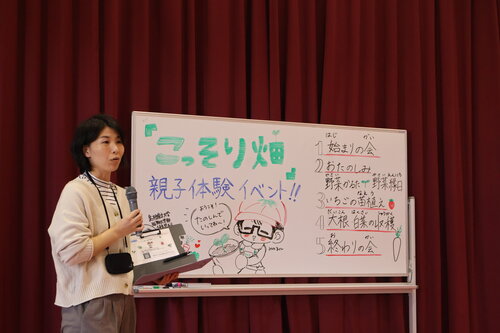 『こっそり畑』
親子体験イベント!!
ようこそ!
たのしんで
いってね〜
はじ かい
1) 始まりの会
2) おたのしみ
野菜かるた 野菜縁日
3) いちごの苗植え
4) 大根 白菜の収穫
5) 終わりの会